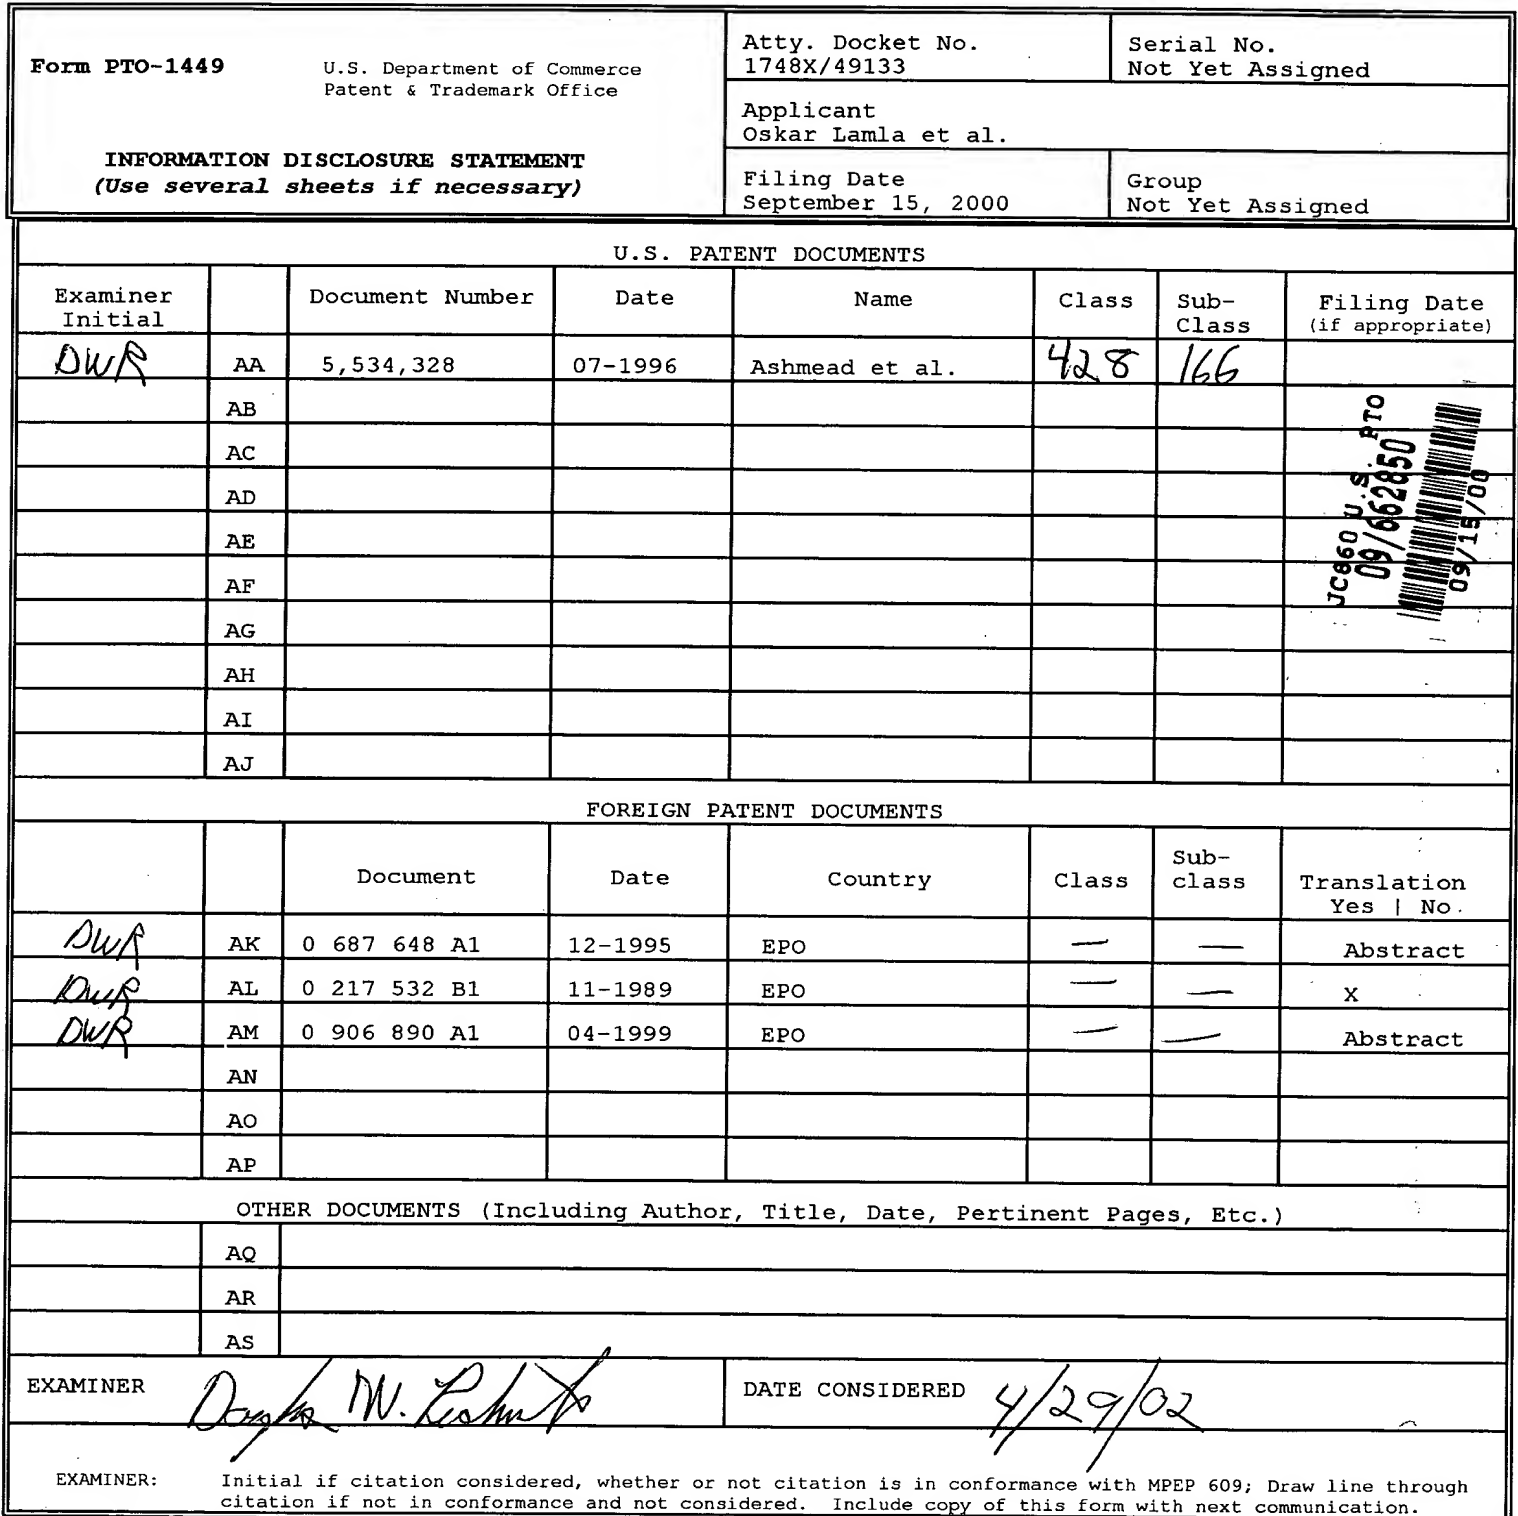 Form PTO-1449
U.S. Department of Commerce
Patent & Trademark Office
INFORMATION DISCLOSURE STATEMENT
(Use several sheets if necessary)
Atty. Docket No.
1748X/49133
Serial No.
Not Yet Assigned
Applicant
Oskar Lamla et al.
Filing Date
September 15, 2000
Group
Not Yet Assigned
U.S. PATENT DOCUMENTS
Examiner
Initial
Document Number
Date
Name
Class
Sub-
Class
Filing Date
(if appropriate)
DWR AA 5,534,328 07-1996 Ashmead et al. 428 166
AB
AC
AD
AE
AF
AG
AH
AI
AJ
JC860 U.S. PTO
09/662850
09/15/00
FOREIGN PATENT DOCUMENTS
Document
Date
Country
Class
Sub-
class
Translation
Yes | No
DWR AK 0 687 648 A1 12-1995 EPO — — Abstract
DWR AL 0 217 532 B1 11-1989 EPO — — X
DWR AM 0 906 890 A1 04-1999 EPO — — Abstract
AN
AO
AP
OTHER DOCUMENTS (Including Author, Title, Date, Pertinent Pages, Etc.)
AQ
AR
AS
EXAMINER
W.
DATE CONSIDERED 4/29/02
EXAMINER: Initial if citation considered, whether or not citation is in conformance with MPEP 609; Draw line through
citation if not in conformance and not considered. Include copy of this form with next communication.